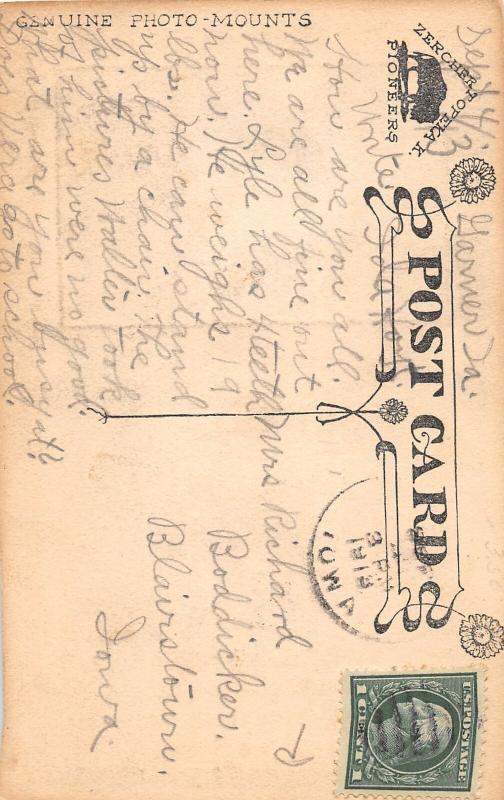 GENUINE PHOTO-MOUNTS
ZERCHER TOPEKA K.
PIONEERS
POST CARD
Garner Ia.
How are you all.
We are all fine out
here. Lyle has 4 teeth
now. He weighs 19
lbs. He can stand
up by a chair. the
pictures Walter took
of him were no good.
What are you busy at?
Does Vera go to school.
Mrs Richard
Boddicker.
Blairstown.
Iowa.
IOWA
U.S. POSTAGE
1 CENT 1